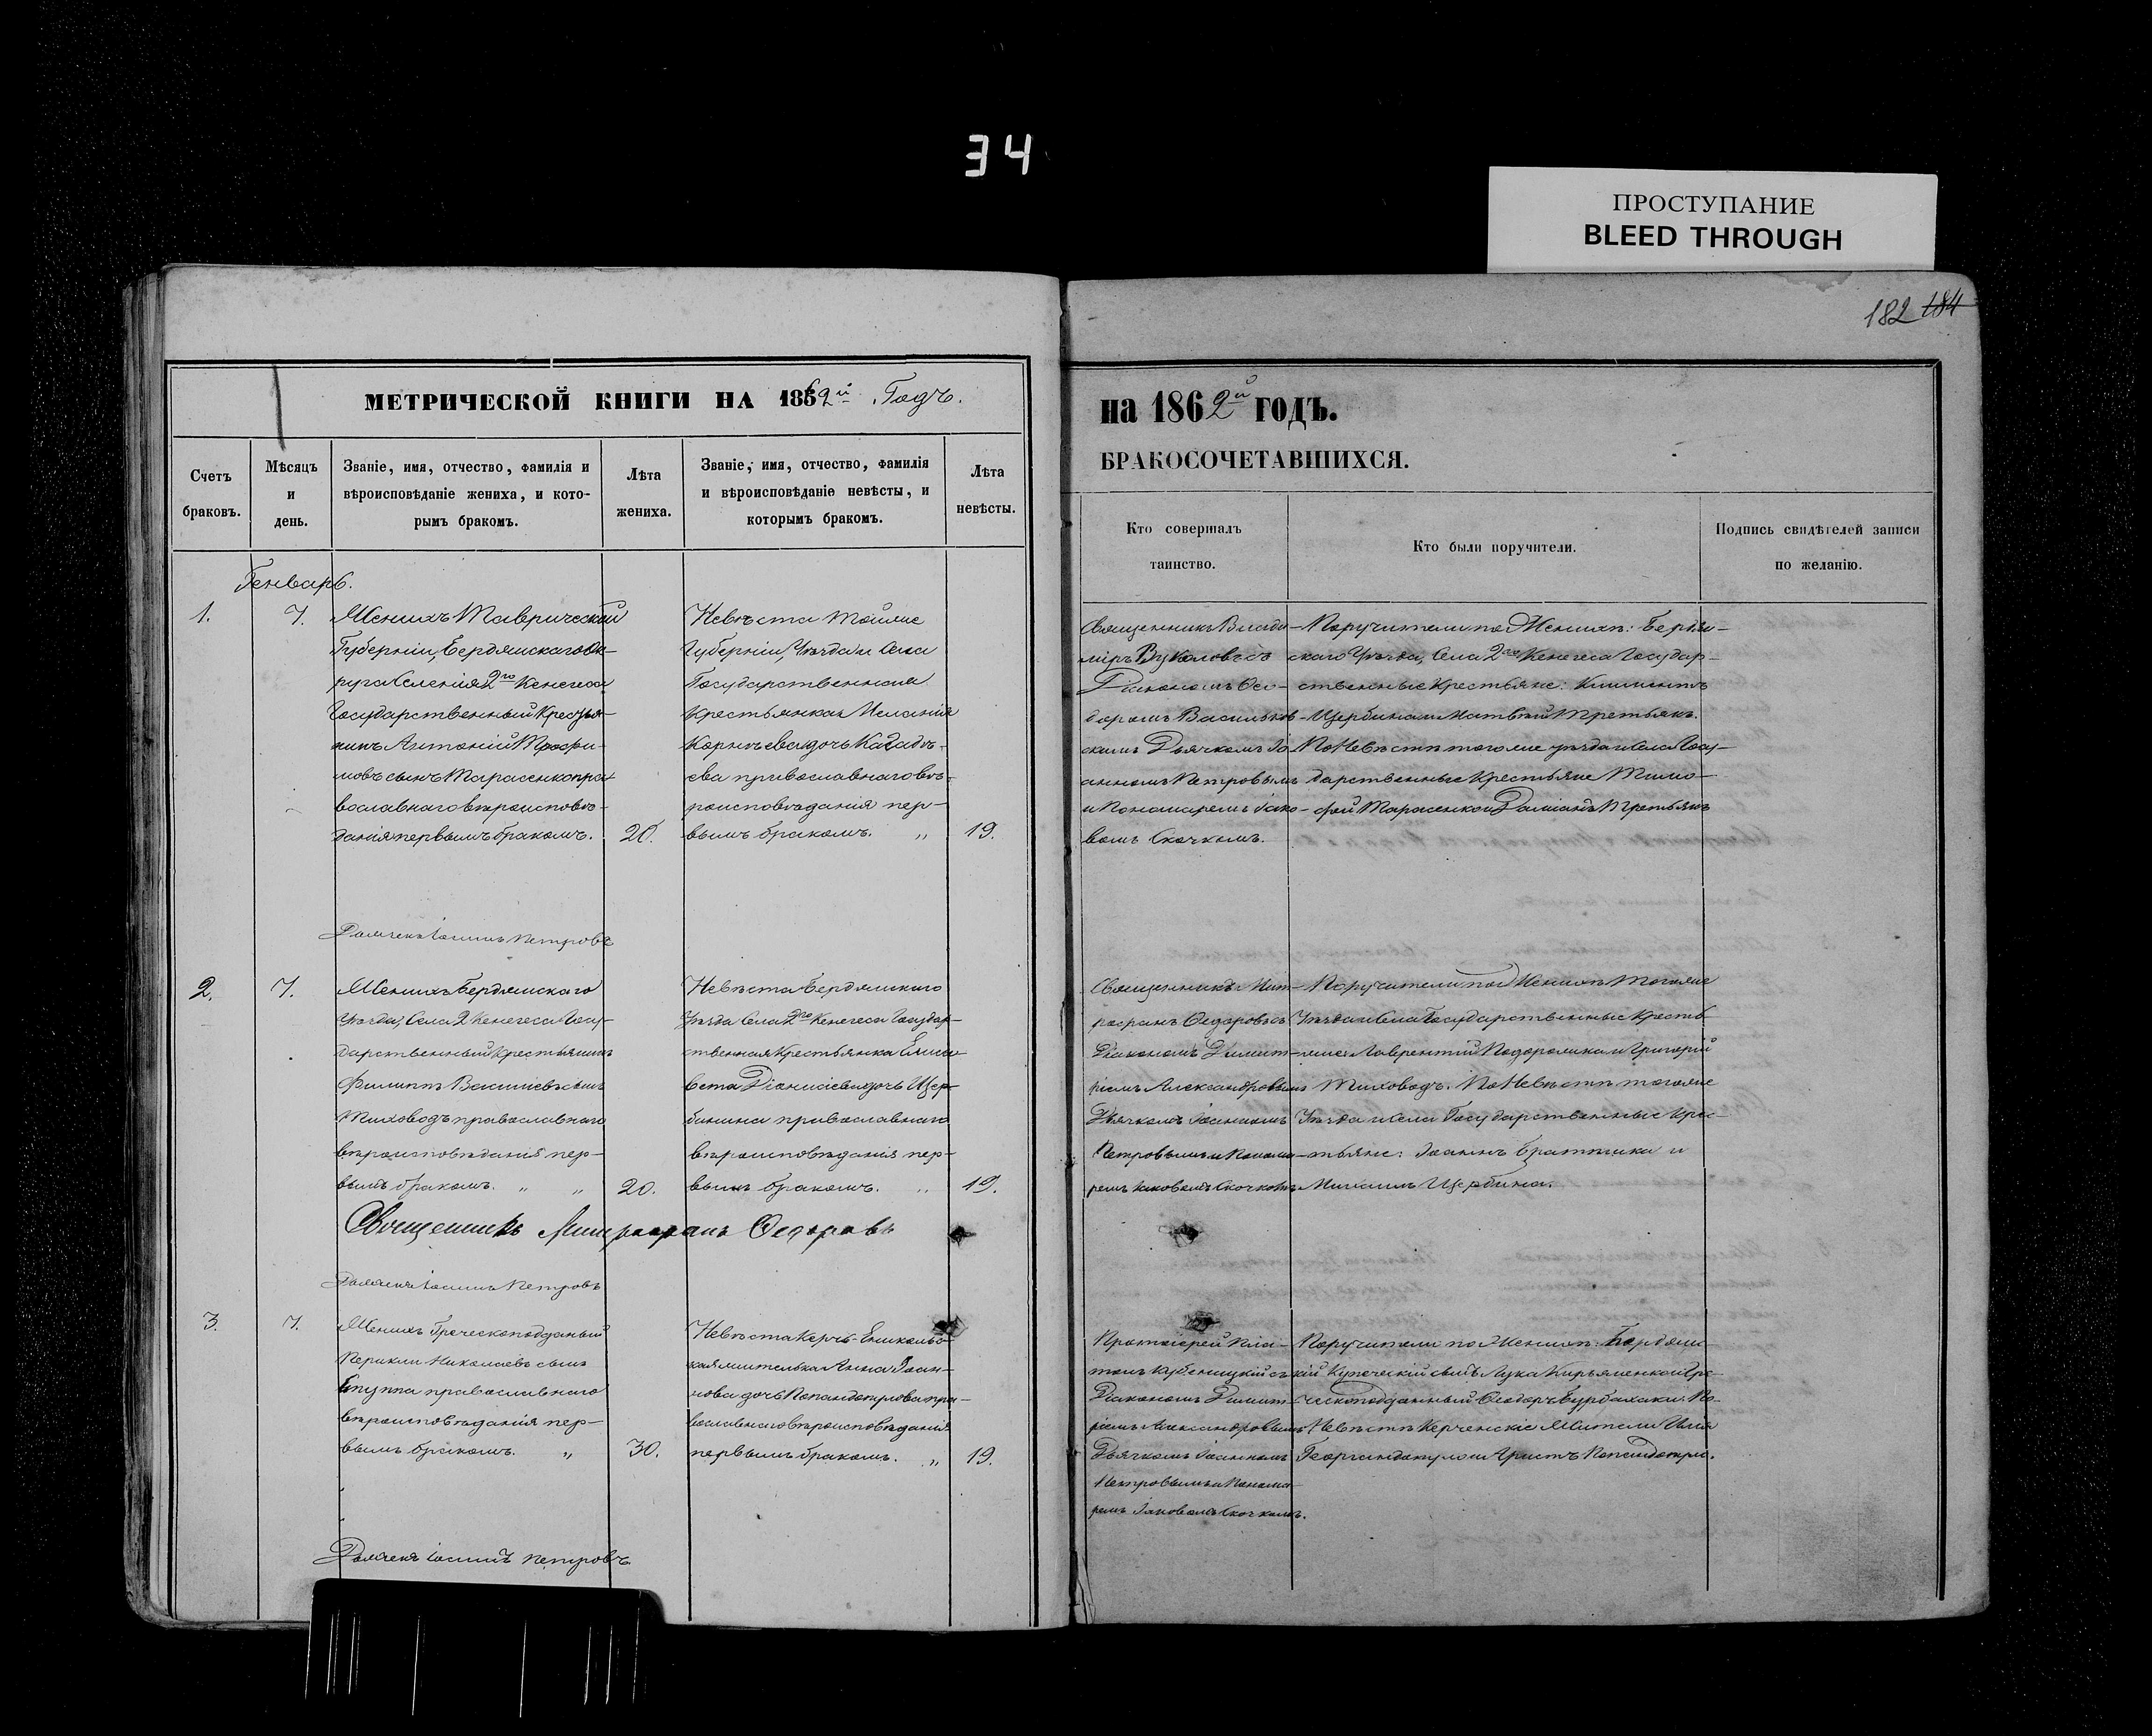 34
ПРОСТУПАНИЕ
BLEED THROUGH
182 184
МЕТРИЧЕСКОЙ КНИГИ НА 1862й Годъ.
Счетъ браковъ.
Мѣсяцъ и день.
Званіе, имя, отчество, фамилія и
вѣроисповѣданіе жениха, и кото-
рымъ бракомъ.
Лѣта жениха.
Званіе, имя, отчество, фамилія
и вѣроисповѣданіе невѣсты, и
которымъ бракомъ.
Лѣта невѣсты.
Генварь.
1. 7.
Женихъ Таврической
Губерніи, Бердянскаго Ок-
руга Селенія 2го Кенегеса
Государственный Крестья-
нинъ Антоній Трофи-
мовъ сынъ Тарасенко пра-
вославнаго вѣроисповѣ-
данія первымъ бракомъ. 20.
Невѣста Тойже
Губерніи, Уѣзда и Села
Государственная
Крестьянка Меланія
Корнѣева дочь
ева православнаго вѣ-
роисповѣданія пер-
вымъ бракомъ. „ 19.
Дьячекъ Іоаннъ Петровъ
2. 7.
Женихъ Бердянскаго
Уѣзда, Села 2 Кенегеса Госу-
дарственный Крестьянинъ
Филиппъ Василіевъ сынъ
Тиховодъ православнаго
вѣроисповѣданія пер-
вымъ бракомъ. „ „ 20.
Невѣста Бердянскаго
Уѣзда Села 2го Кенегеса Государ-
ственная Крестьянка Елиса-
вета Діонисіева дочь Щер-
бинина православнаго
вѣроисповѣданія пер-
вымъ бракомъ. „ 19.
Священникъ Митрофанъ Ѳедоровъ
Дьячекъ Іоаннъ Петровъ
3. 7.
Женихъ Греческоподданый
Перикли Николаевъ сынъ
православнаго
вѣроисповѣданія пер-
вымъ бракомъ. „ 30.
Невѣста Керчь-Еникольс-
кая жителька Анна Іоан-
нова дочь Попандопулова пра-
вославнаго вѣроисповѣданія
первымъ бракомъ. „ 19.
Дьячекъ Іоаннъ Петровъ
на 1862й ГОДЪ.
БРАКОСОЧЕТАВШИХСЯ.
Кто совершалъ
таинство.
Кто были поручители.
Подпись свидѣтелей записи
по желанію.
Священникъ Влади-
міръ Вуколовъ съ
Діакономъ Ѳео-
доромъ Васильков-
скимъ Дьячкомъ Іо-
анномъ Петровымъ
и Пономаремъ Іако-
вомъ Скочкомъ.
Поручители по Женихѣ: Бердян-
скаго Уѣзда, Села 2го Кенегеса Государ-
ственные Крестьяне: Климентъ
Щербина и Матвѣй Третьякъ.
По Невѣстѣ тогоже уѣзда и Села Госу-
дарственные Крестьяне Тимо-
фей Тарасенко и Даміанъ Третьякъ
Священникъ Мит-
рофанъ Ѳедоровъ съ
Діакономъ Димит-
ріемъ Александровымъ
Дьячкомъ Іоанномъ
Петровымъ и Понома-
ремъ Іаковомъ Скочкомъ
Поручители по Женихѣ Тогоже
Уѣзда и Села Государственные Кресть-
яне: Лаврентій и Григорій
Тиховодъ. По Невѣстѣ тогоже
Уѣзда и Села Государственные Крес-
тьяне: Іоаннъ и
Михаилъ Щербина.
Протоіерей Пла-
тонъ съ
Діакономъ Димит-
ріемъ Александровымъ
Дьячкомъ Іоанномъ
Петровымъ и Понома-
ремъ Іаковомъ Скочкомъ.
Поручители по Женихѣ: Бердянс-
кій Купеческій сынъ Лука и Гре-
ческоподданный Ѳеодоръ По-
Невѣстѣ Керченскіе Жители Илія
Георгандопуло и Христъ Попандопуло.